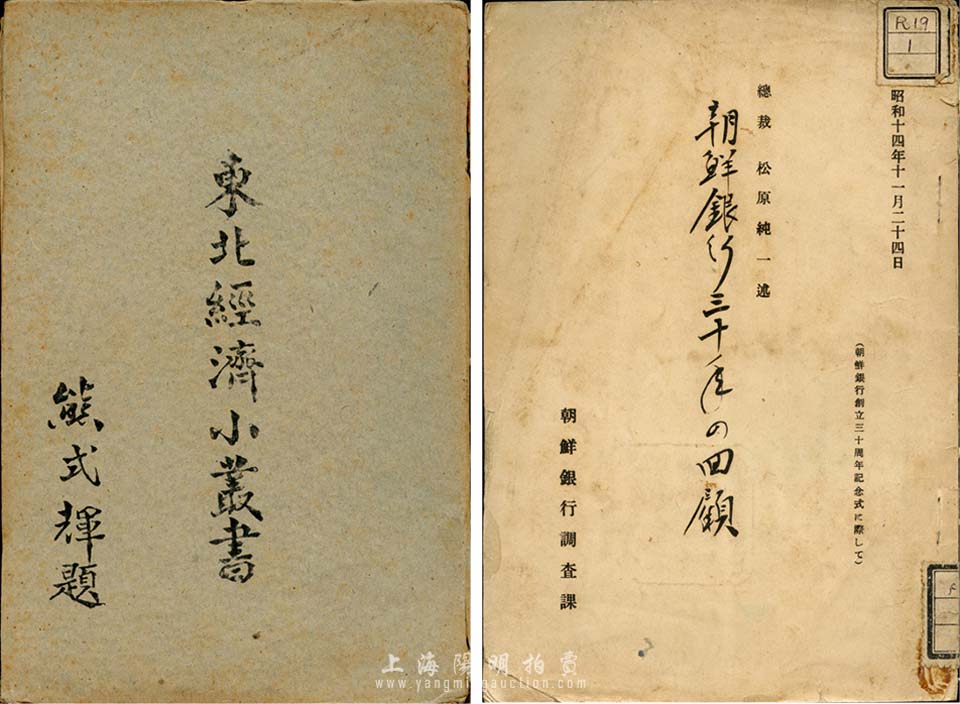 東北經濟小叢書
熊式輝題
R19
1
昭和十四年十一月二十四日
(朝鮮銀行創立三十周年記念式に際して)
總裁 松原純一述
朝鮮銀行三十年の回顧
朝鮮銀行調査課
f
上海陽明拍賣
www.yangmingauction.com